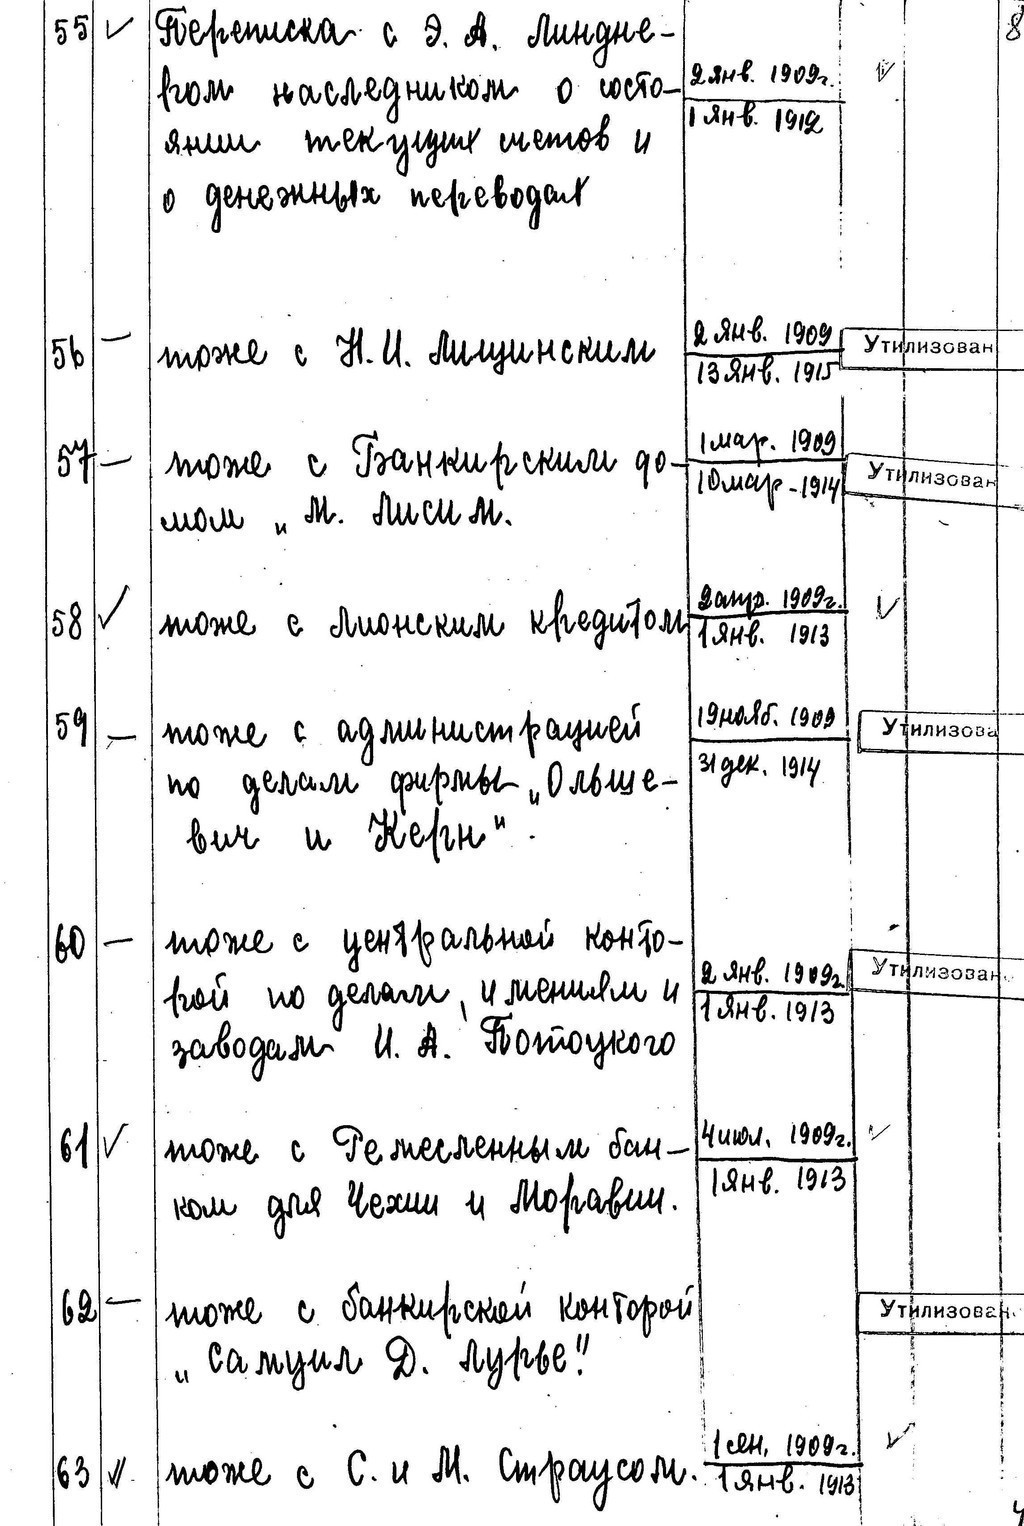 55 Переписка с Э. А. Линдне- 8
ром наследником о состо- 2 янв. 1909г.
янии текущих счетов и 1 янв. 1912
о денежных переводах
56 — тоже с Н. И. Лищинским 2 янв. 1909 Утилизован
13 янв. 1915
57 — тоже с Банкирским до- 1 мар. 1909 Утилизован
мом „М. Лисим. 10 мар - 1914
58 тоже с Лионским кредитом 2 апр. 1909г.
1 янв. 1913
59 — тоже с администрацией 19 нояб. 1909 Утилизова
по делам фирмы „Ольше- 31 дек. 1914
вич и Керн".
60 — тоже с центральной конто- Утилизован
рой по делам, имениям и 2 янв. 1909г.
заводам И. А. Потоцкого 1 янв. 1913
61 тоже с Ремесленным бан- 4 июл. 1909г.
ком для Чехии и Моравии. 1 янв. 1913
62 — тоже с банкирской конторой Утилизован
„Самуил Д. Лурье".
63 тоже с С. и М. Страусом. 1 сен. 1909г.
1 янв. 1913